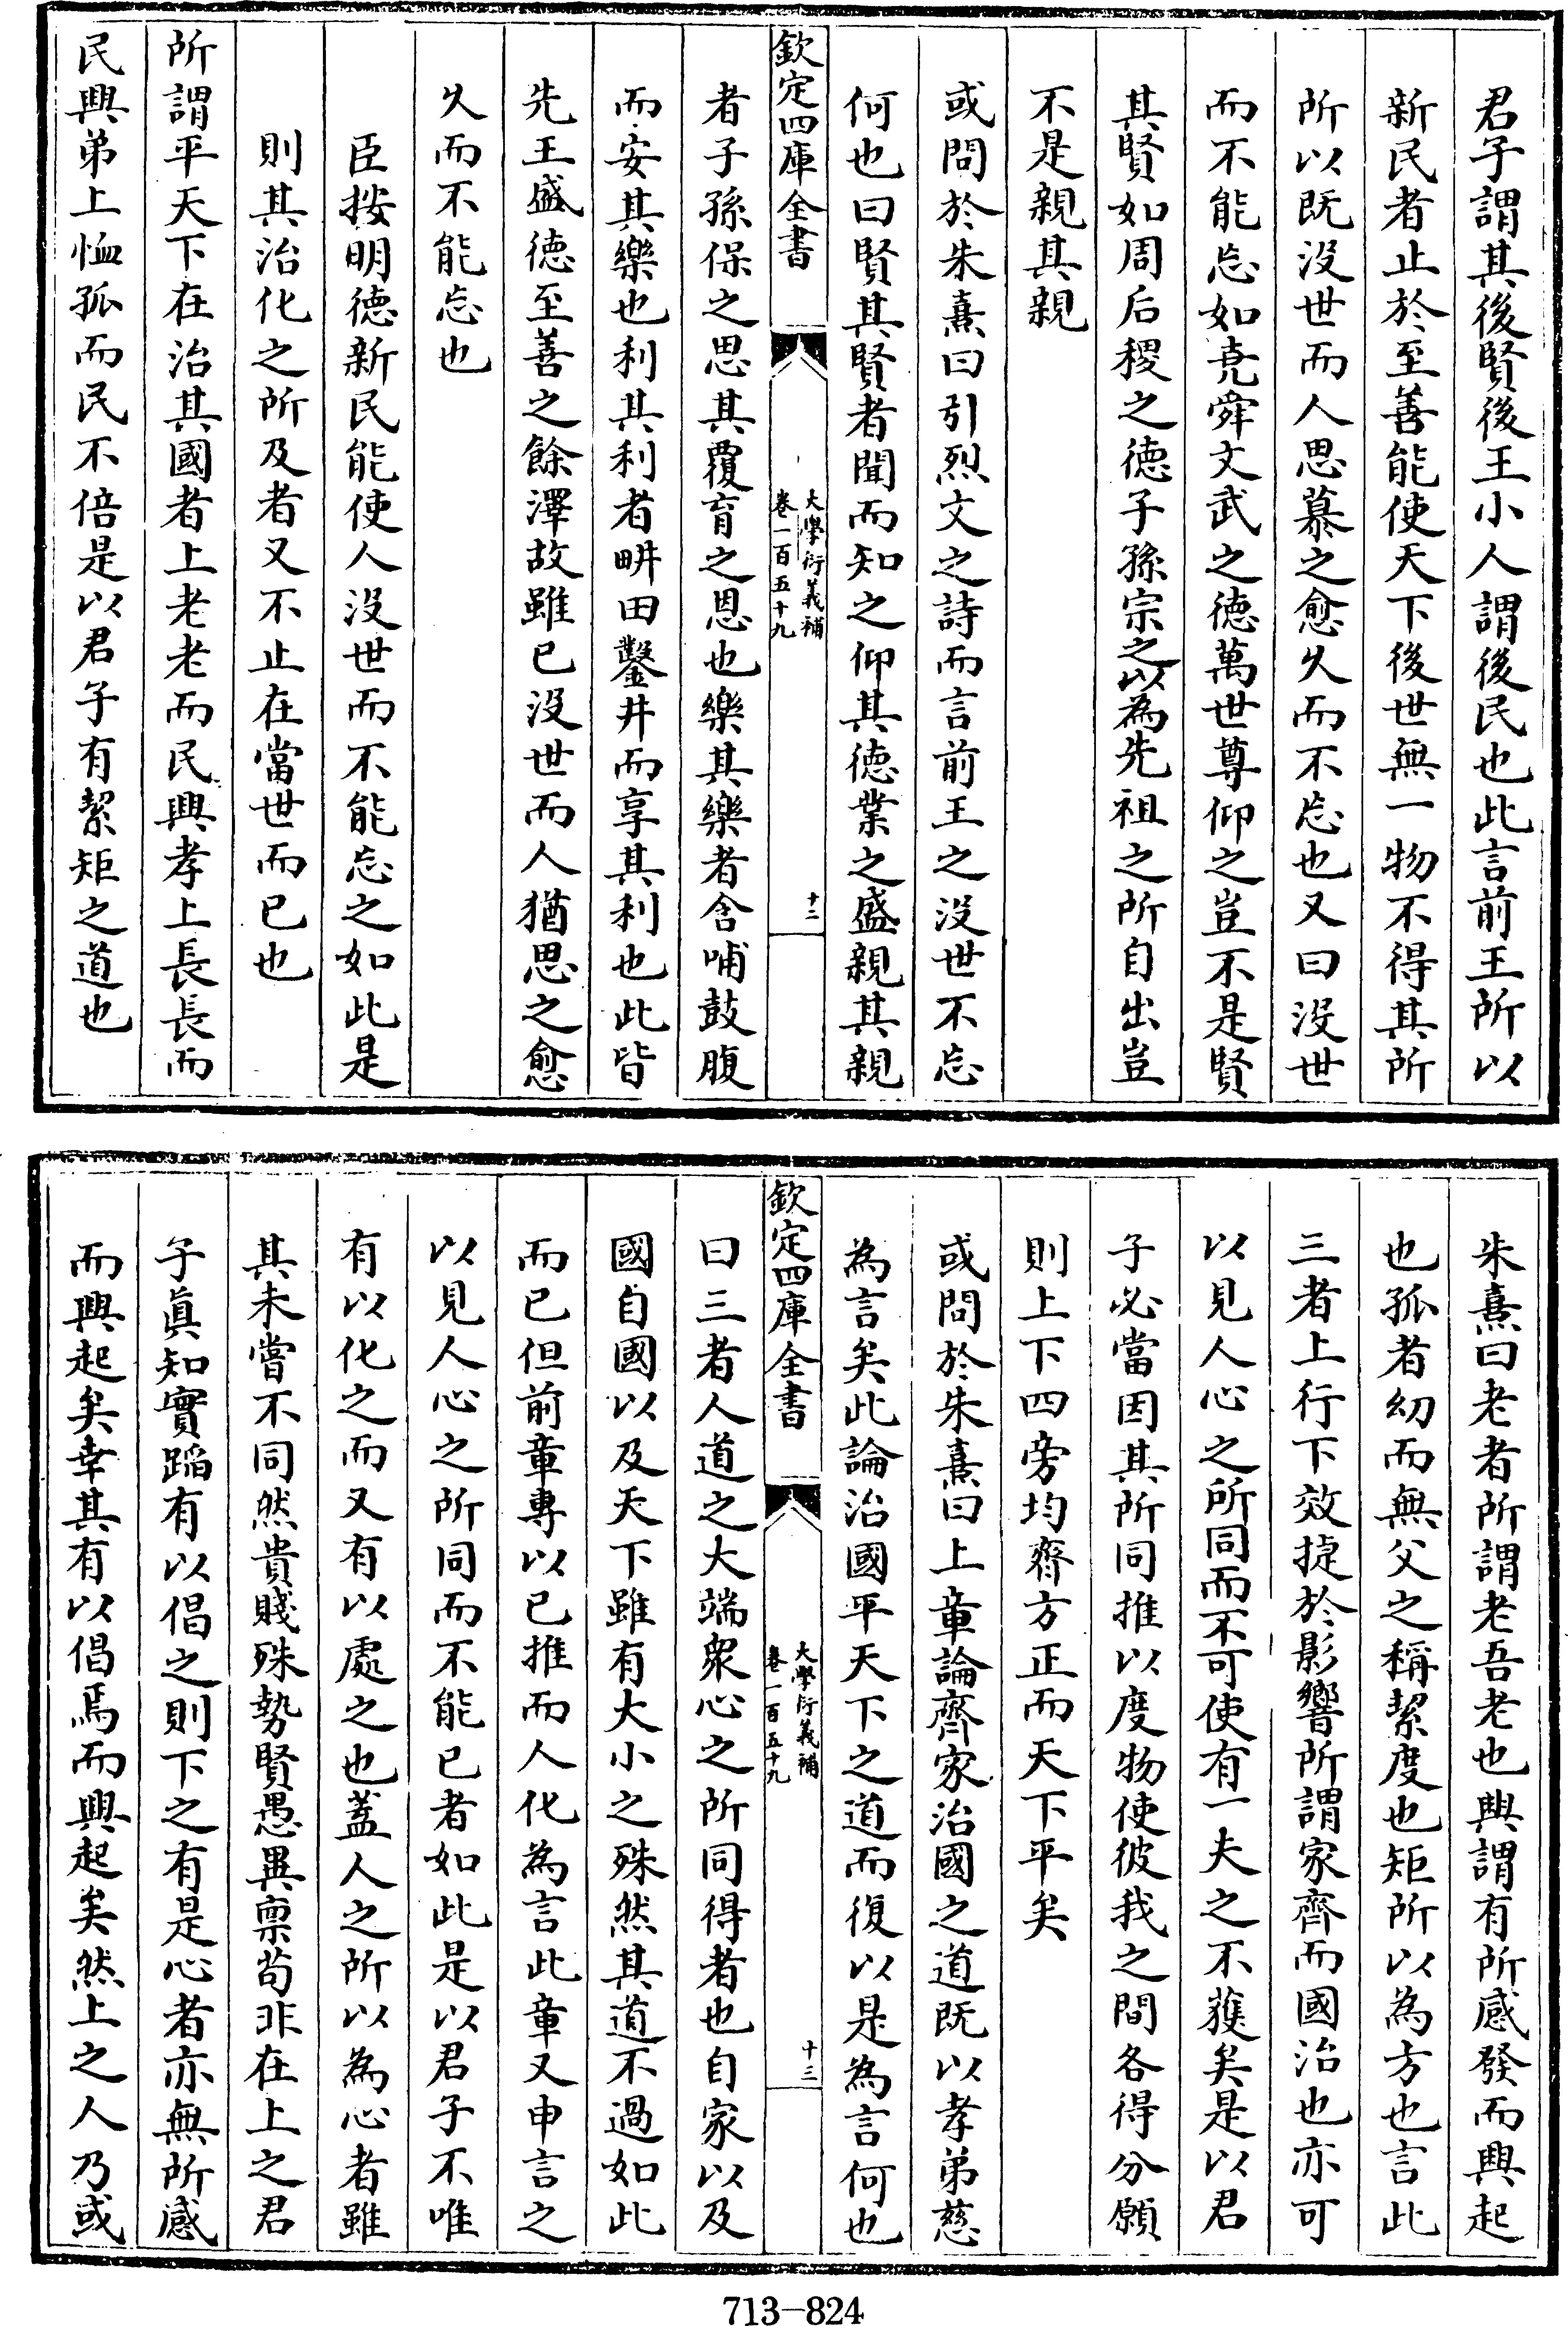 君子謂其後賢後王小人謂後民也此言前王所以
新民者止於至善能使天下後世無一物不得其所
所以既没世而人思慕之愈久而不忘也又曰没世
而不能忘如堯舜文武之徳萬世尊仰之豈不是賢
其賢如周后稷之徳子孫宗之以為先祖之所自出豈
不是親其親
或問於朱熹曰引烈文之詩而言前王之没世不忘
何也曰賢其賢者聞而知之仰其徳業之盛親其親
欽定四庫全書
大學衍義補
卷一百五十九
十二
者子孫保之思其覆育之恩也樂其樂者含哺鼓腹
而安其樂也利其利者畊田鑿井而享其利也此皆
先王盛徳至善之餘澤故雖已没世而人猶思之愈
久而不能忘也
臣按明徳新民能使人没世而不能忘之如此是
則其治化之所及者又不止在當世而已也
所謂平天下在治其國者上老老而民興孝上長長而
民興弟上恤孤而民不倍是以君子有絜矩之道也
朱熹曰老者所謂老吾老也興謂有所感發而興起
也孤者幼而無父之稱絜度也矩所以為方也言此
三者上行下效捷於影響所謂家齊而國治也亦可
以見人心之所同而不可使有一夫之不獲矣是以君
子必當因其所同推以度物使彼我之間各得分願
則上下四旁均齊方正而天下平矣
或問於朱熹曰上章論齊家治國之道既以孝弟慈
為言矣此論治國平天下之道而復以是為言何也
欽定四庫全書
大學衍義補
卷一百五十九
十三
曰三者人道之大端衆心之所同得者也自家以及
國自國以及天下雖有大小之殊然其道不過如此
而已但前章專以已推而人化為言此章又申言之
以見人心之所同而不能已者如此是以君子不唯
有以化之而又有以處之也蓋人之所以為心者雖
其未嘗不同然貴賤殊勢賢愚異禀苟非在上之君
子眞知實蹈有以倡之則下之有是心者亦無所感
而興起矣幸其有以倡焉而興起矣然上之人乃或
713-824